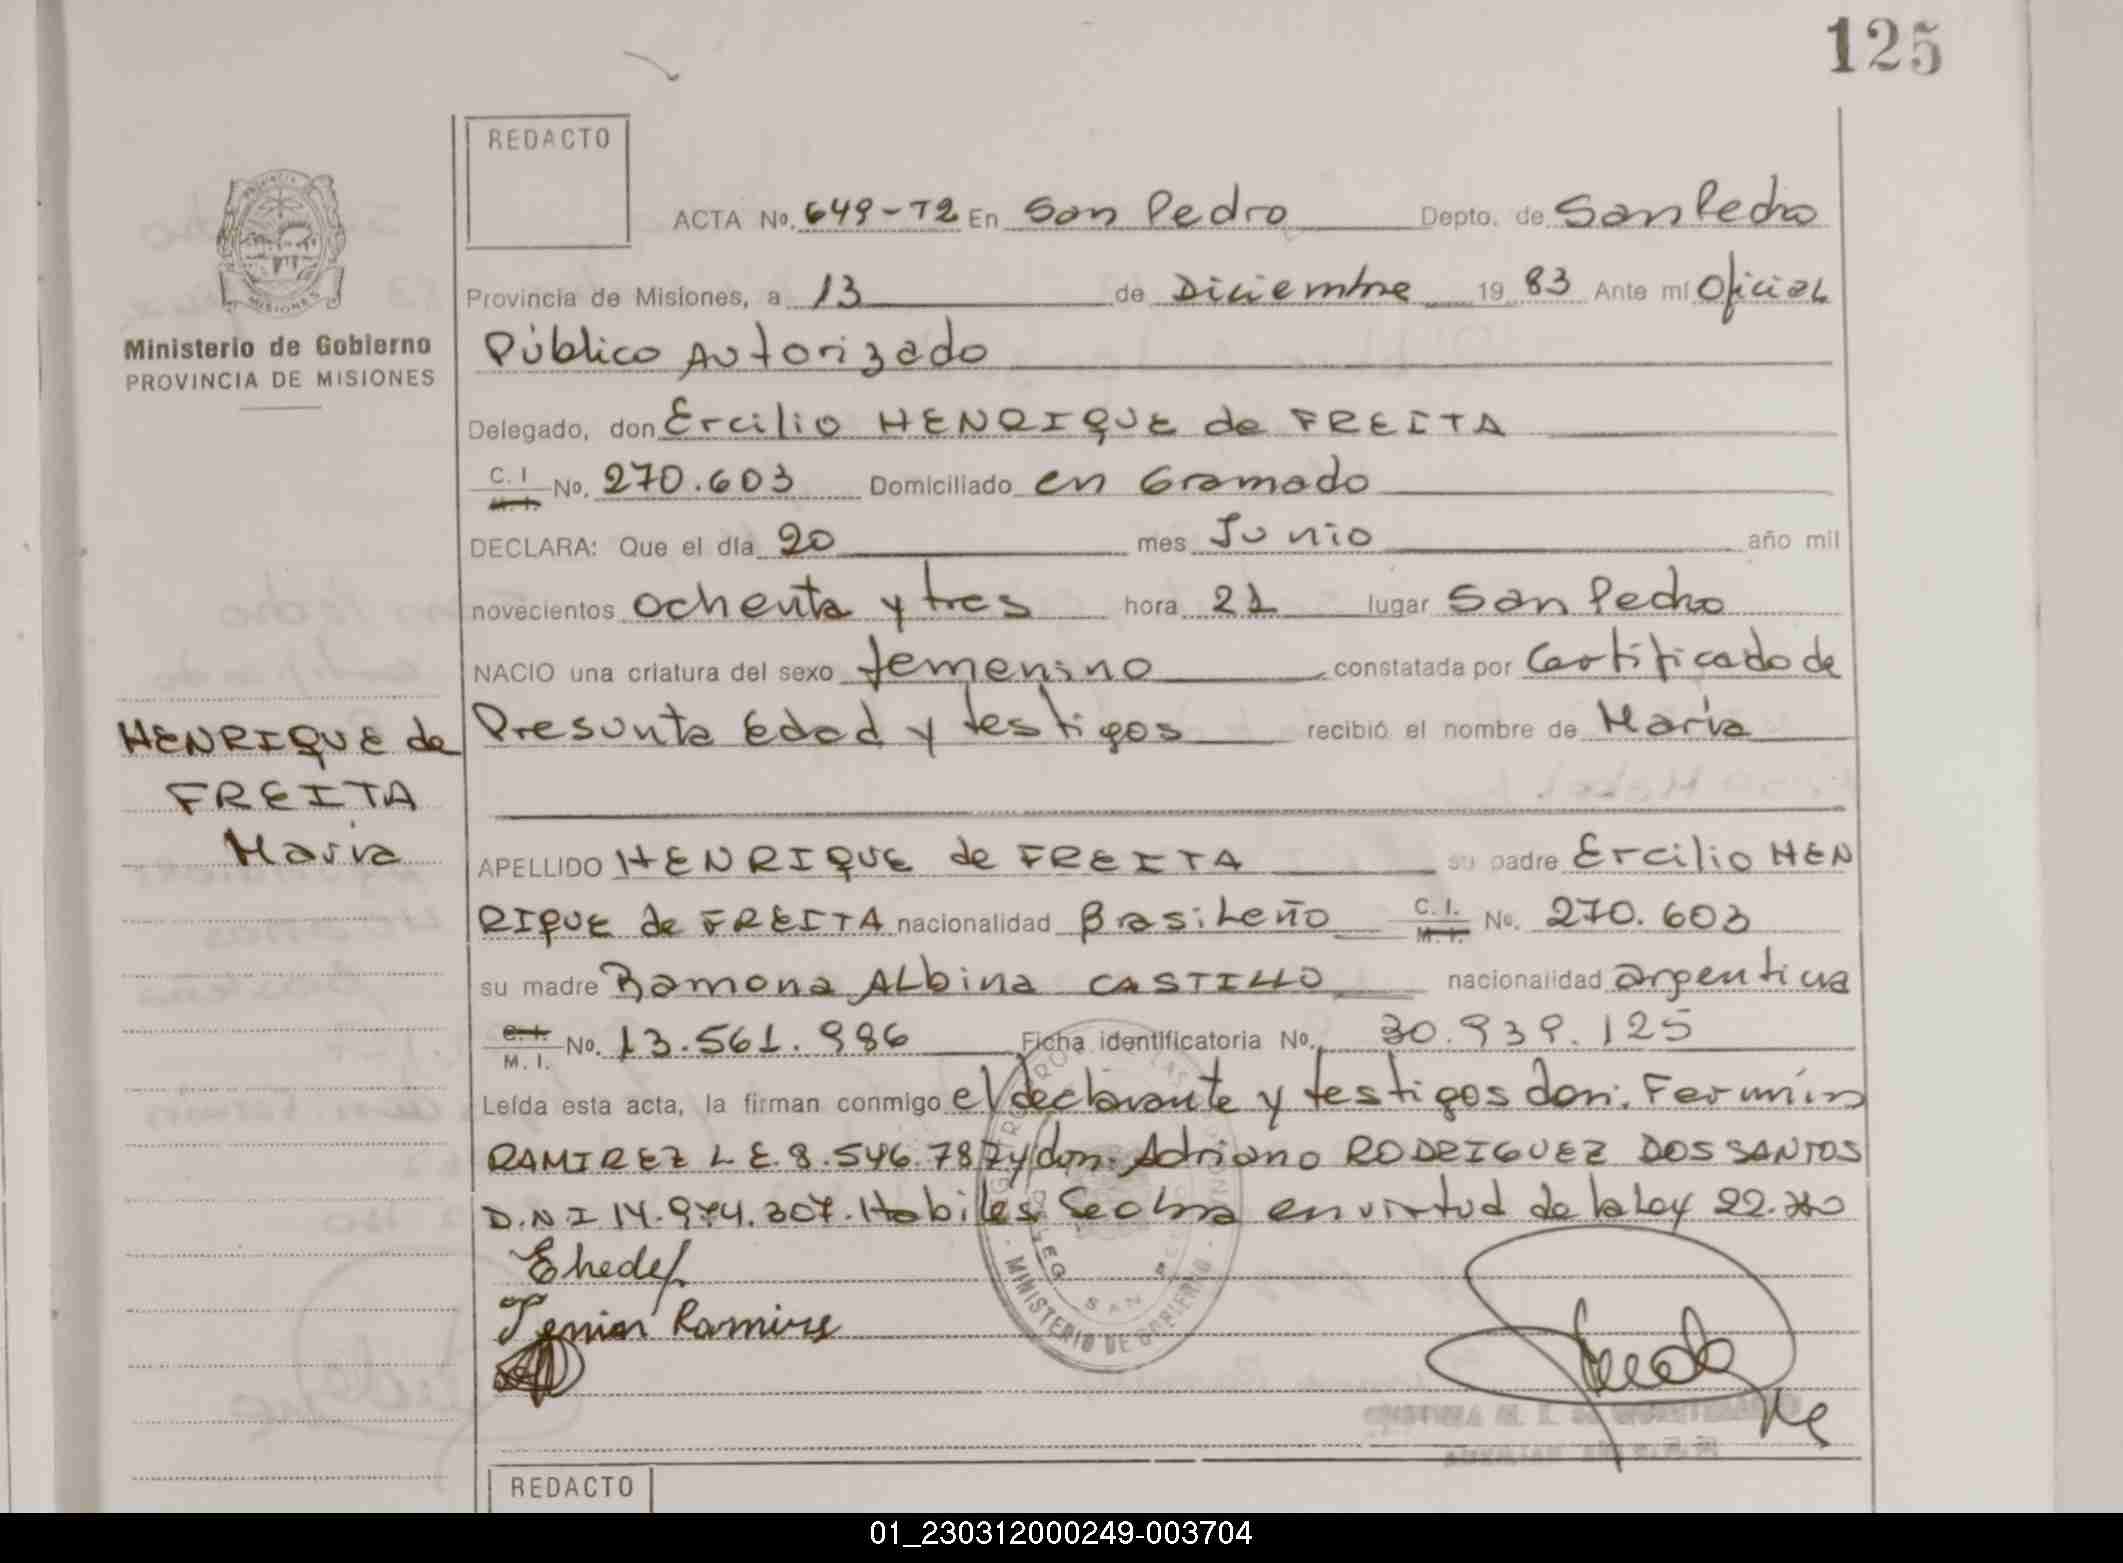 125
REDACTO
ACTA No. 649-T2 En San Pedro Depto. de San Pedro
Provincia de Misiones, a 13 de Diciembre 19 83 Ante mí Oficial
Ministerio de Gobierno
PROVINCIA DE MISIONES
Público Autorizado
Delegado, don Ercilio HENRIQUE de FREITA
C. I. M. I. No. 270.603 Domiciliado en Gramado
DECLARA: Que el día 20 mes Junio año mil
novecientos ochenta y tres hora 21 lugar San Pedro
NACIO una criatura del sexo femenino constatada por Certificado de
Presunta Edad y testigos recibió el nombre de María
HENRIQUE de
FREITA
María
APELLIDO HENRIQUE de FREITA su padre Ercilio HEN
RIQUE de FREITA nacionalidad Brasileño C. I. M. I. No. 270.603
su madre Ramona Albina CASTILLO nacionalidad argentina
C. I. M. I. No. 13.561.986 Ficha identificatoria No. 30.939.125
Leída esta acta, la firman conmigo el declarante y testigos don: Fermín
RAMIREZ L.E. 8.546.787 y don: Adriano RODRIGUEZ DOS SANTOS
D.N.I 14.974.307. Habiles. Se obra en virtud de la Ley 22.
Ramires
MINISTERIO DE GOBIERNO
SAN
REDACTO
01_230312000249-003704